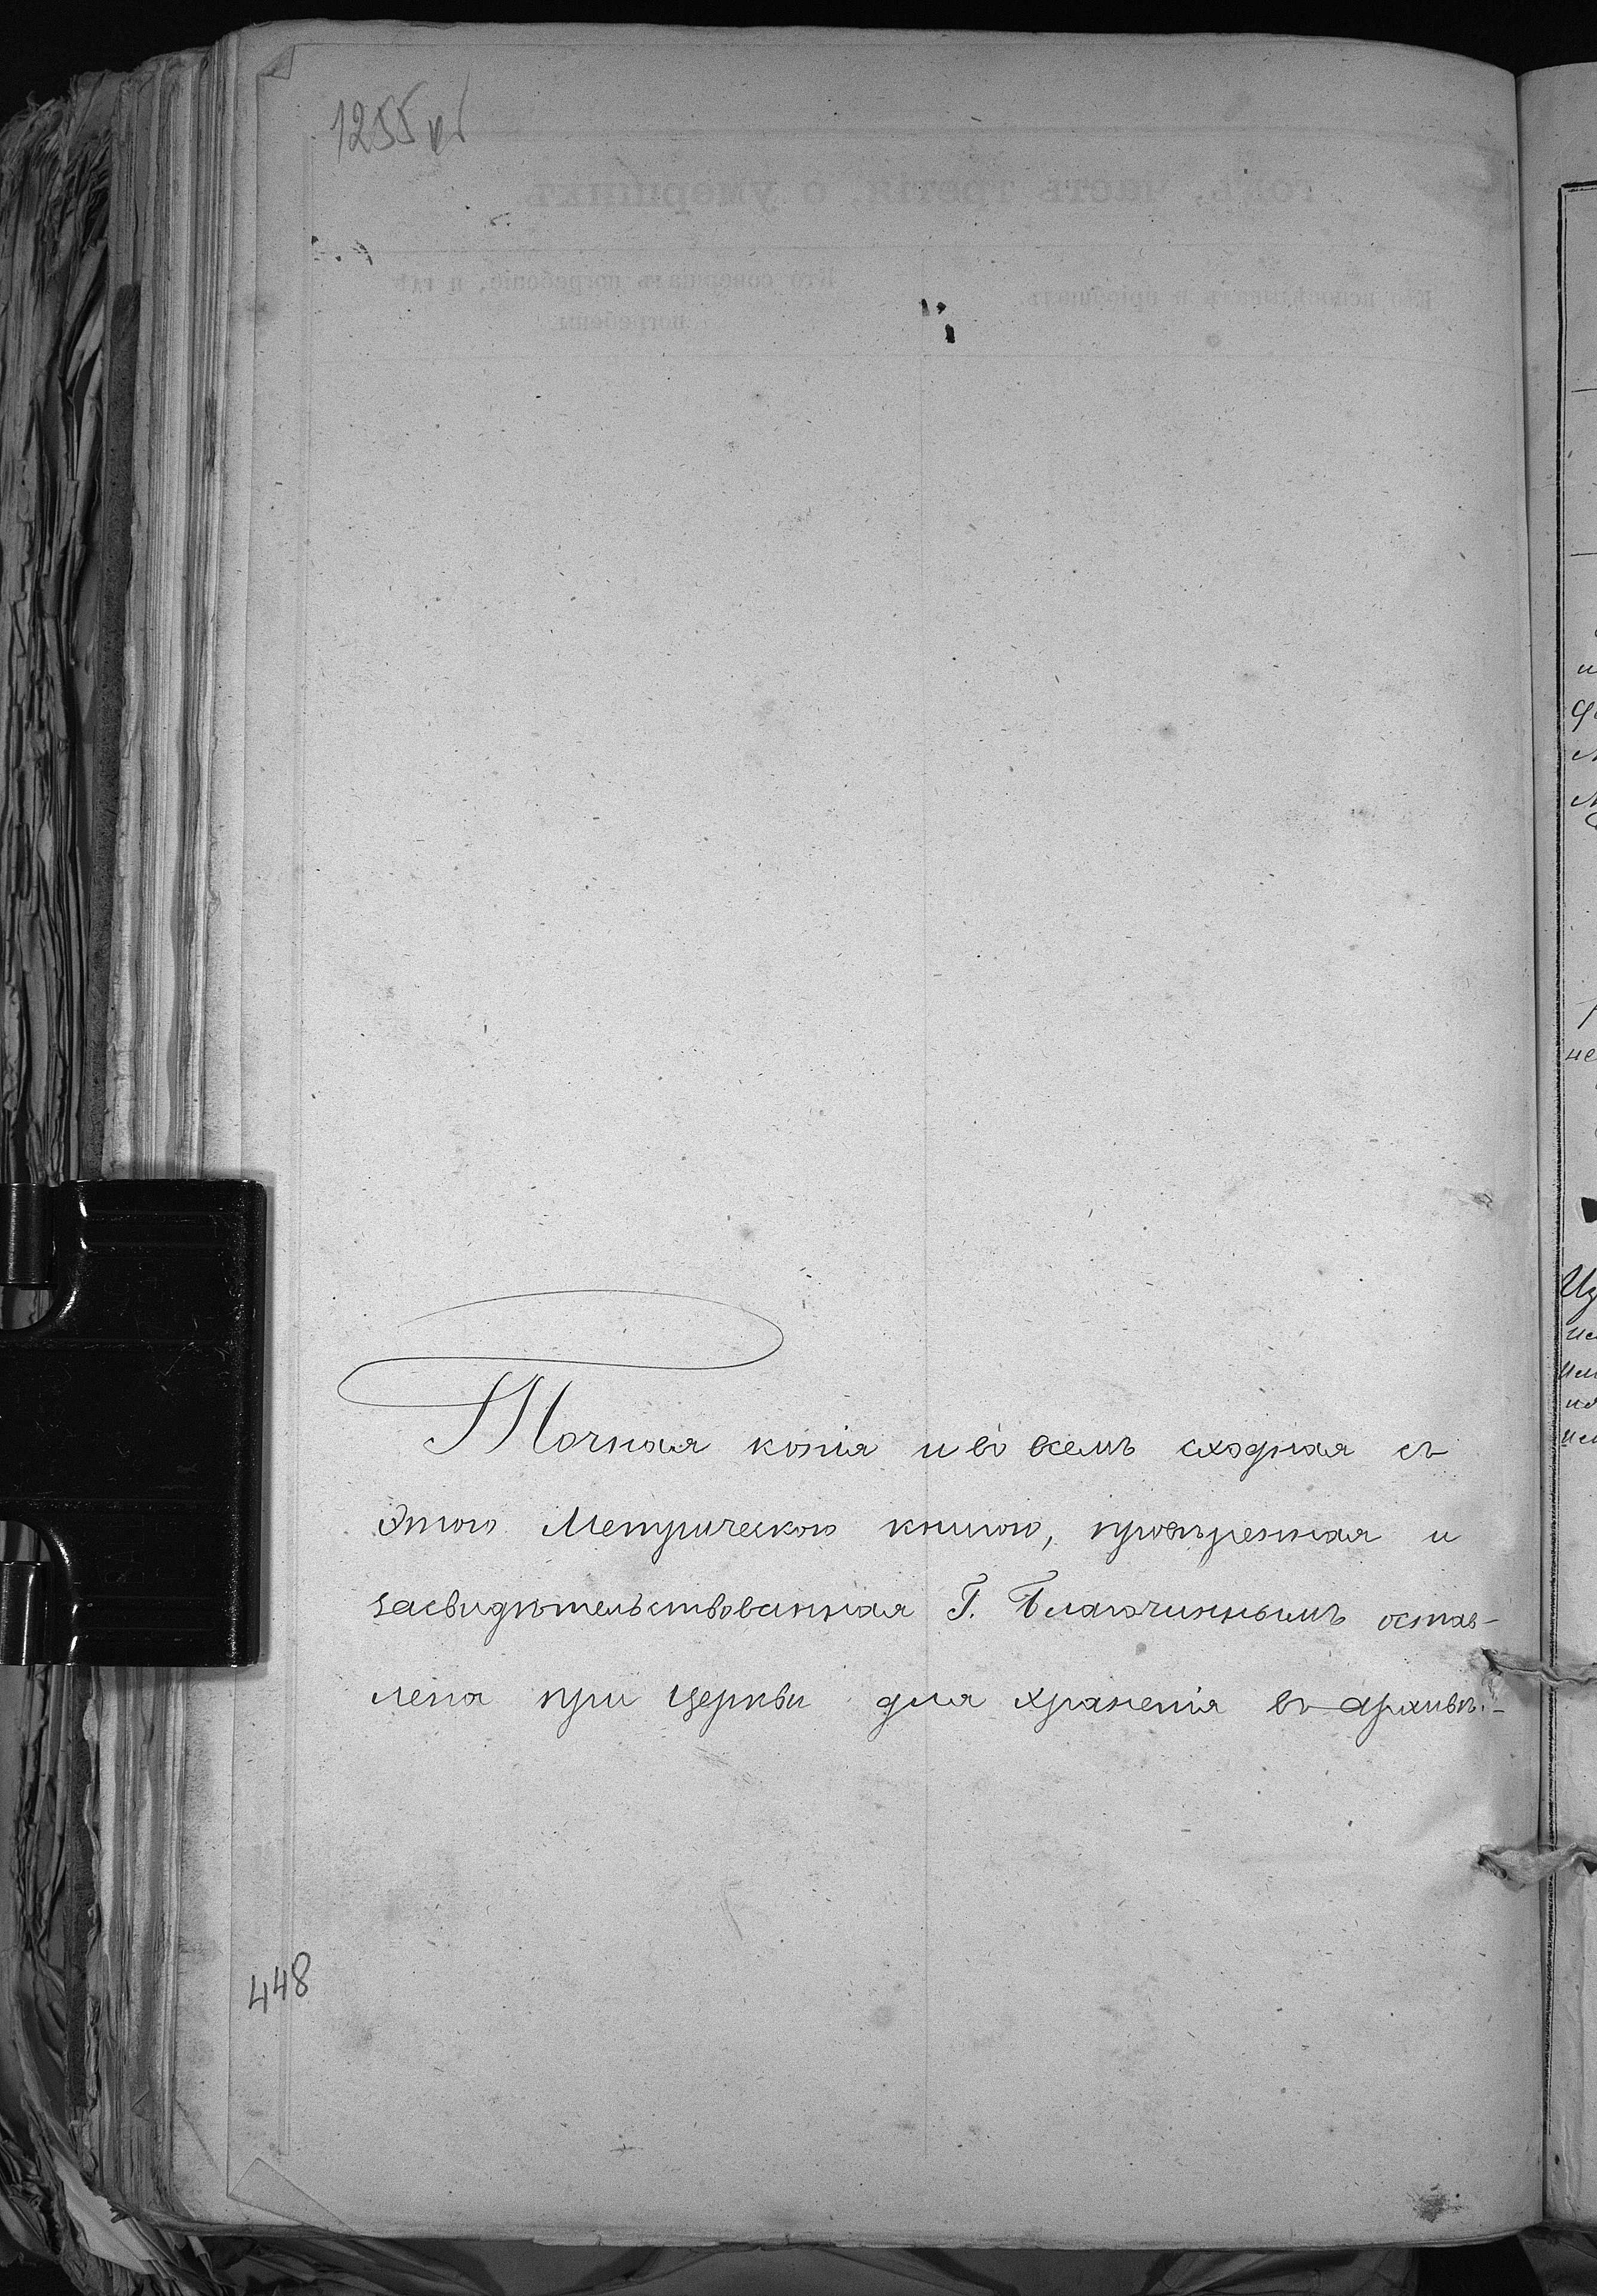 1255 об
Точная копія и во всемъ сходная съ
этою Метрическою книгою, провѣренная и
засвидѣтельствованная Г. Благочиннымъ остав-
лена при церкви для храненія въ архивѣ.-
448